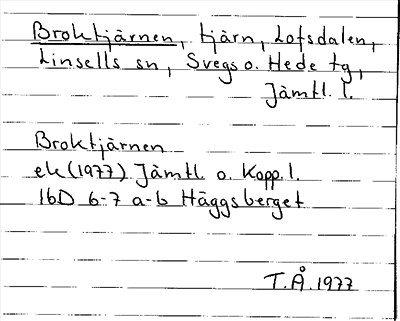 Broktjärnen, tjärn, Lofsdalen,
Linsells sn, Svegs o. Hede tg,
Jämtl. l.
Broktjärnen
ek (1977) Jämtl o. Kopp. l.
16D 6-7 a-b Häggsberget
T.Å. 1977